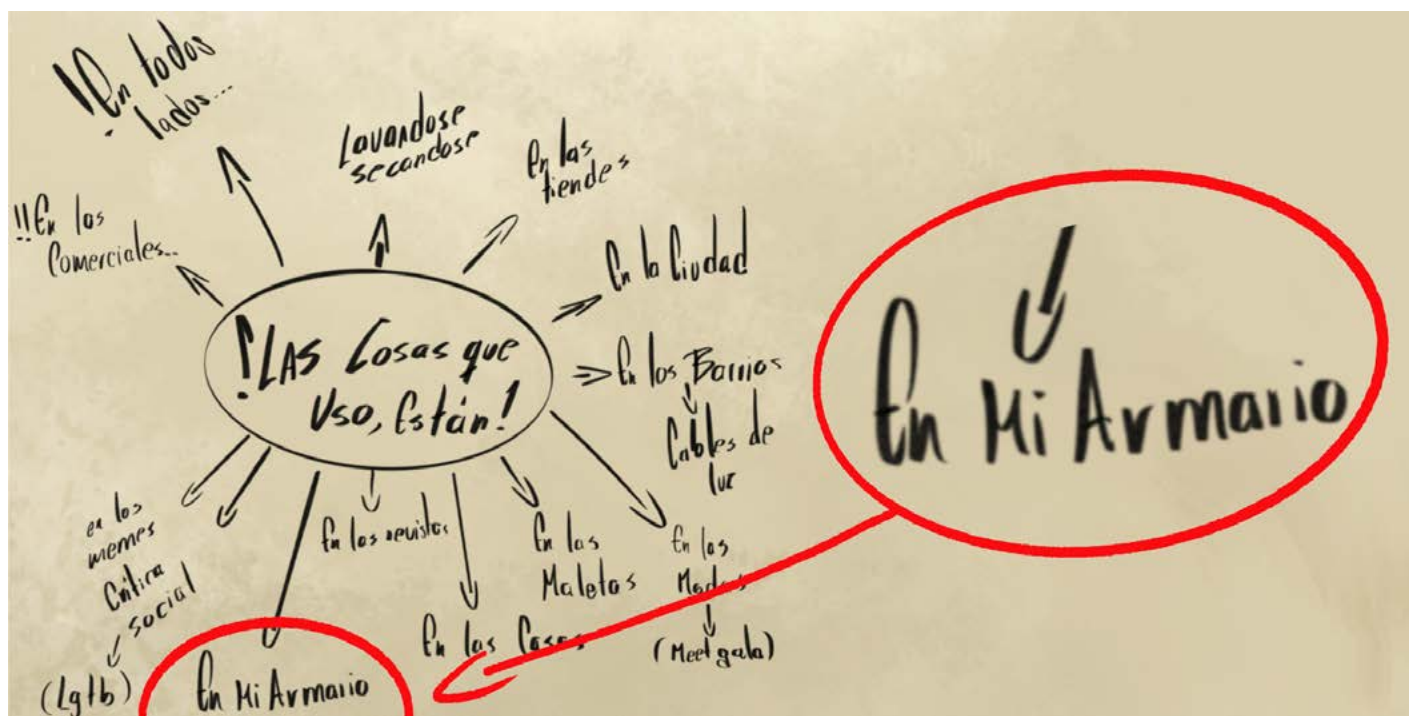 !En todos
lados...
Lavandose
secandose
En las
tiendes
!!En los
Comerciales...
En la Ciudad
!LAS Cosas que
Uso, Están!
En los Barrios
Cables de
luz
en los
memes
Crítica
social
(Lgtb)
En Mi Armario
En las revistas
En las Casas
En las
Maletas
En las
Modas
(Meet gala)
En Mi Armario